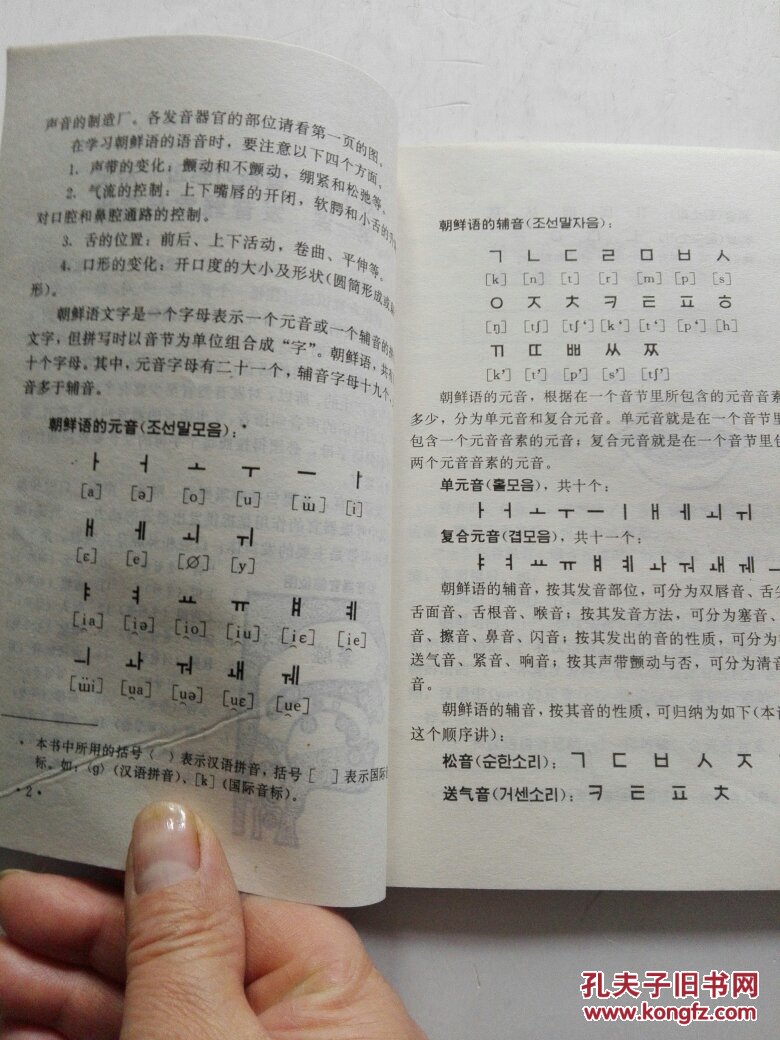 声音的制造厂。各发音器官的部位请看第一页的图。
在学习朝鲜语的语音时，要注意以下四个方面。
1. 声带的变化：颤动和不颤动，绷紧和松弛等。
2. 气流的控制：上下嘴唇的开闭，软腭和小舌的升
对口腔和鼻腔通路的控制。
3. 舌的位置：前后、上下活动，卷曲、平伸等。
4. 口形的变化：开口度的大小及形状(圆筒形成或
形)。
朝鲜语文字是一个字母表示一个元音或一个辅音的
文字，但拼写时以音节为单位组合成“字”。朝鲜语，共有
十个字母。其中，元音字母有二十一个，辅音字母十九个，
音多于辅音。
朝鲜语的元音(조선말모음)：*
ㅏ ㅓ ㅗ ㅜ ㅡ ㅣ
[a] [ə] [o] [u] [ɯ̈] [i]
ㅐ ㅔ ㅚ ㅟ
[ɛ] [e] [∅] [y]
ㅑ ㅕ ㅛ ㅠ ㅒ ㅖ
[i̯a] [i̯ə] [i̯o] [i̯u] [i̯ɛ] [i̯e]
ㅢ ㅘ ㅝ ㅙ ㅞ
[ɯ̈i] [u̯a] [u̯ə] [u̯ɛ] [u̯e]
* 本书中所用的括号〈 〉表示汉语拼音，括号[ ]表示国际
标。如：〈g〉(汉语拼音)、[k](国际音标)。
·2·
朝鲜语的辅音(조선말자음)：
ㄱ ㄴ ㄷ ㄹ ㅁ ㅂ ㅅ
[k] [n] [t] [r] [m] [p] [s]
ㅇ ㅈ ㅊ ㅋ ㅌ ㅍ ㅎ
[ŋ] [tʃ] [tʃ‘] [k‘] [t‘] [p‘] [h]
ㄲ ㄸ ㅃ ㅆ ㅉ
[k’] [t’] [p’] [s’] [tʃ’]
朝鲜语的元音，根据在一个音节里所包含的元音音素
多少，分为单元音和复合元音。单元音就是在一个音节
包含一个元音音素的元音；复合元音就是在一个音节里包
两个元音音素的元音。
单元音(홑모음)，共十个：
ㅏ ㅓ ㅗ ㅜ ㅡ ㅣ ㅐ ㅔ ㅚ ㅟ
复合元音(겹모음)，共十一个：
ㅑ ㅕ ㅛ ㅠ ㅒ ㅖ ㅘ ㅝ ㅙ ㅞ
朝鲜语的辅音，按其发音部位，可分为双唇音、舌尖
舌面音、舌根音、喉音；按其发音方法，可分为塞音、
音、擦音、鼻音、闪音；按其发出的音的性质，可分为
送气音、紧音、响音；按其声带颤动与否，可分为清音
音。
朝鲜语的辅音，按其音的性质，可归纳为如下(本
这个顺序讲)：
松音(순한소리)：ㄱ ㄷ ㅂ ㅅ ㅈ
送气音(거센소리)：ㅋ ㅌ ㅍ ㅊ
孔夫子旧书网
www.kongfz.com